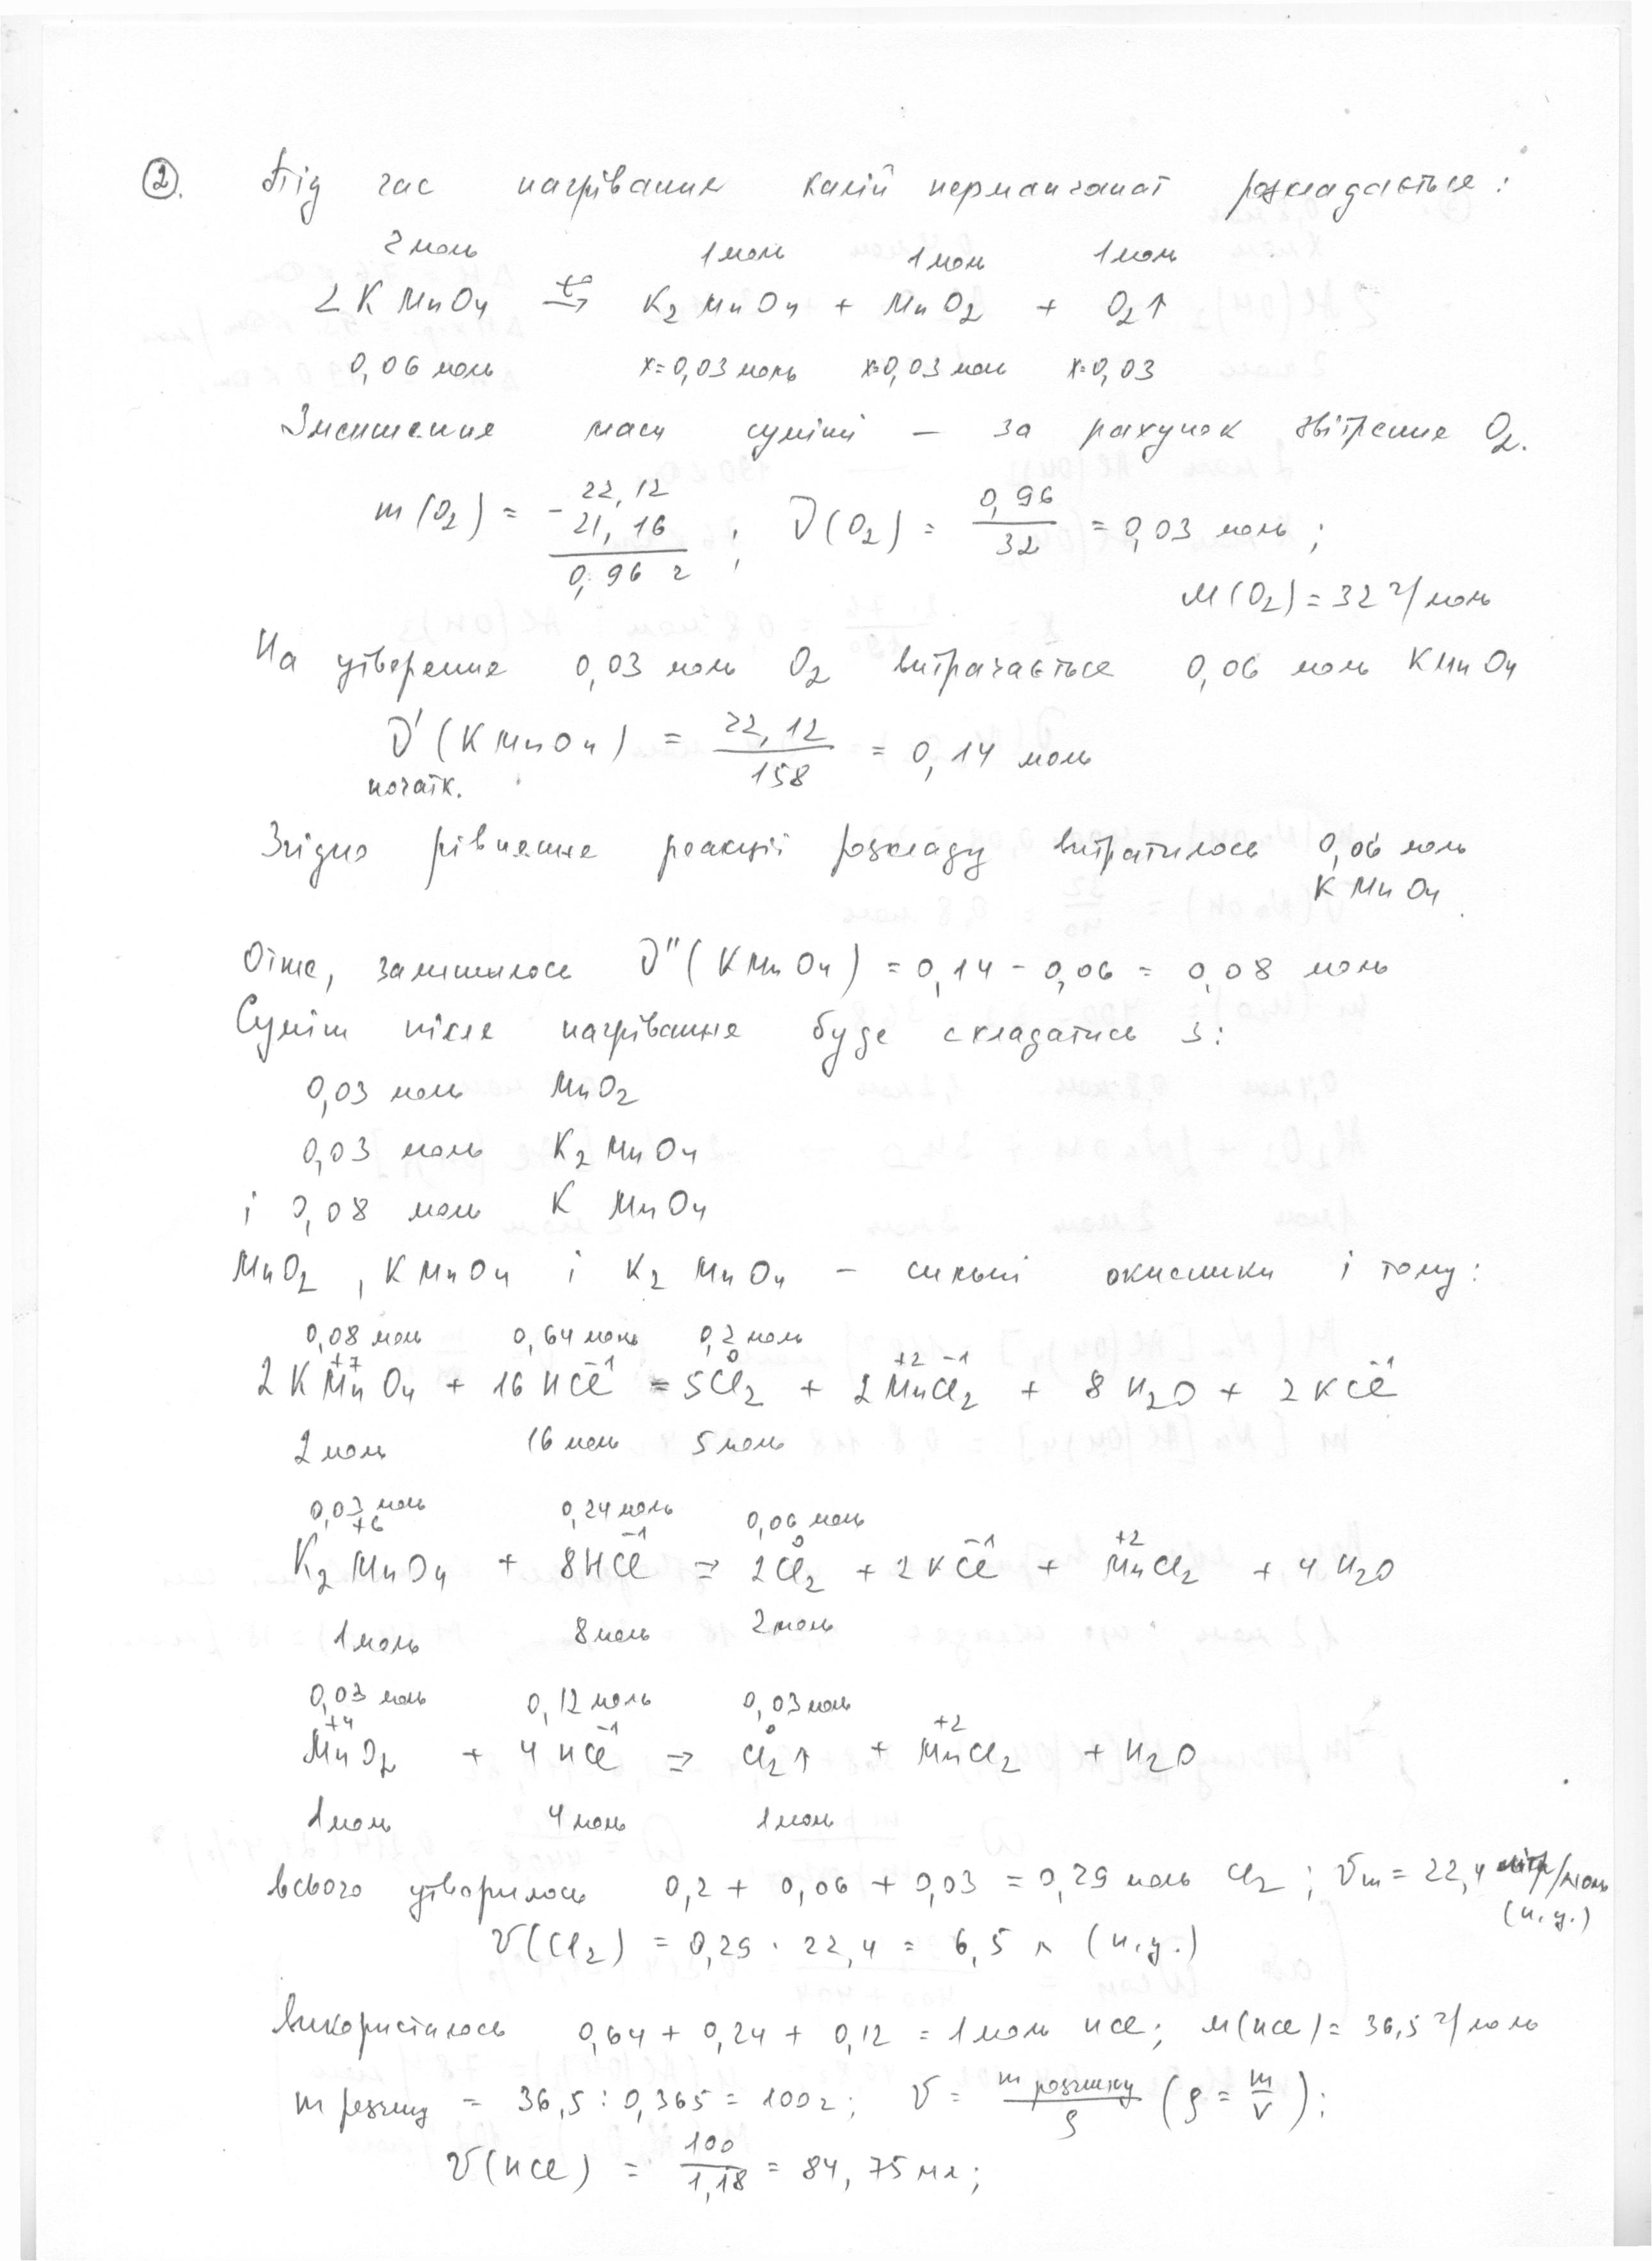 2. Під час нагрівання калій перманганат розкладається:
2 моль 1 моль 1 моль 1 моль
2 K MnO4 t°→ K2 MnO4 + MnO2 + O2↑
0,06 моль x=0,03 моль x=0,03 моль x=0,03
Зменшення маси суміші – за рахунок звітрення O2.
m(O2) = - 22,12 21,16 / 0,96 г ; ν(O2) = 0,96/32 = 0,03 моль ;
M(O2) = 32 г/моль
На утворення 0,03 моль O2 витрачається 0,06 моль KMnO4
ν'(KMnO4) = 22,12/158 = 0,14 моль
початк.
Згідно рівняння реакції розкладу витратилось 0,06 моль
K MnO4.
Отже, залишилось ν''(KMnO4) = 0,14 - 0,06 = 0,08 моль
Суміш після нагрівання буде складатись з:
0,03 моль MnO2
0,03 моль K2 MnO4
і 0,08 моль K MnO4
MnO2, KMnO4 і K2 MnO4 – сильні окисники і тому:
0,08 моль 0,64 моль 0,2 моль
+7 -1 0 +2 -1 -1
2 K MnO4 + 16 HCl = 5Cl2 + 2 MnCl2 + 8 H2O + 2 KCl
2 моль 16 моль 5 моль
0,03 моль 0,24 моль 0,06 моль
+6 -1 0 -1 +2
K2 MnO4 + 8HCl ⇒ 2Cl2 + 2 KCl + MnCl2 + 4 H2O
1 моль 8 моль 2 моль
0,03 моль 0,12 моль 0,03 моль
+4 -1 0 +2
MnO2 + 4 HCl ⇒ Cl2↑ + MnCl2 + H2O
1 моль 4 моль 1 моль
всього утворилось 0,2 + 0,06 + 0,03 = 0,29 моль Cl2 ; Vm = 22,4 /моль
(н.у.)
V(Cl2) = 0,29 · 22,4 = 6,5 л (н.у.)
Використалось 0,64 + 0,24 + 0,12 = 1 моль HCl; M(HCl) = 36,5 г/моль
m розчину = 36,5 : 0,365 = 100 г; V = m розчину/ρ (ρ = m/V);
V(HCl) = 100/1,18 = 84,75 мл;